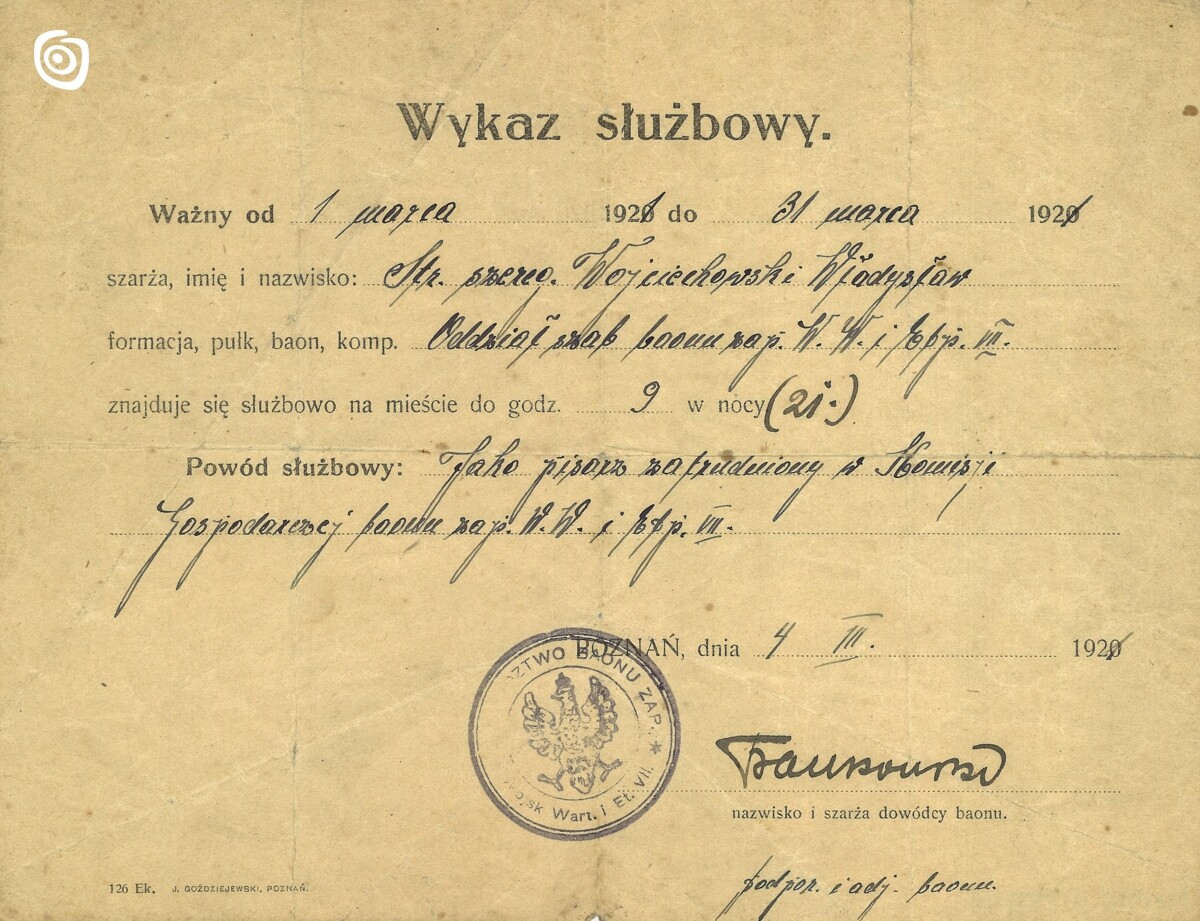 Wykaz służbowy.
Ważny od 1 marca 1921 do 31 marca 1921
szarża, imię i nazwisko: Str. szereg. Wojciechowski Władysław
formacja, pułk, baon, komp. Oddział sztab baonu zap. W. W. i Etp. VII.
znajduje się służbowo na mieście do godz. 9 w nocy (21.)
Powód służbowy: Jako pisarz zatrudniony w Komisji
Gospodarczej baonu zap. W. W. i Etp. VII.
POZNAŃ, dnia 4 III. 1921
DZTWO BAONU ZAP.
Wojsk Wart. i Et. VII.
nazwisko i szarża dowódcy baonu.
podpor. i adj. baonu.
126 Ek. J. GOŹDZIEJEWSKI, POZNAŃ.